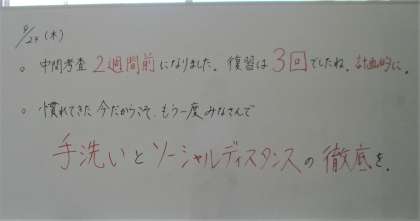 9/24(木)
。中間考査2週間前になりました。復習は3回でしたね。計画的に。
。慣れてきた今だからこそ、もう一度みなさんで
手洗いとソーシャルディスタンスの徹底を。